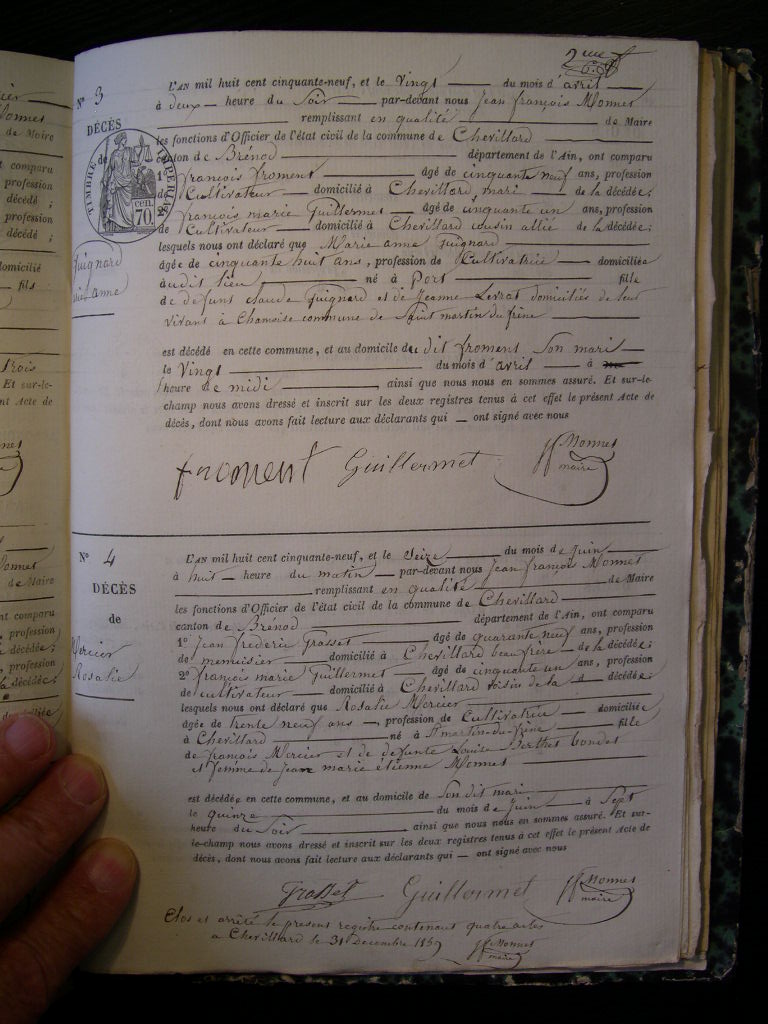 2eme f
N° 3
DÉCÈS
de
TIMBRE IMPÉRIAL
CEN. 70.
Guignard
Marie anne
L'AN mil huit cent cinquante-neuf, et le Vingt du mois d'avril
à deux heure du Soir par-devant nous Jean françois Monnet
remplissant en qualité de Maire
les fonctions d'Officier de l'état civil de la commune de Chevillard
canton de Brénod département de l'Ain, ont comparu
1° françois froment âgé de cinquante neuf ans, profession
de Cultivateur domicilié à Chevillard, mari de la décédée;
2° françois marie Guillermet âgé de cinquante un ans, profession
de Cultivateur domicilié à Chevillard cousin allié de la décédée;
lesquels nous ont déclaré que Marie anne Guignard
âgée de cinquante huit ans, profession de Cultivatrice domiciliée
audit lieu né à Port fille
de defunt claude Guignard et de Jeanne Levrat domiciliés de leur
vivant à Chamoise commune de Saint martin du frêne
est décédé en cette commune, et au domicile du dit froment Son mari
le Vingt du mois d'avril à
heure de midi ainsi que nous nous en sommes assuré. Et sur-le-
champ nous avons dressé et inscrit sur les deux registres tenus à cet effet le présent Acte de
décès, dont nous avons fait lecture aux déclarants qui ont signé avec nous
froment Guillermet Monnet
maire
N° 4
DÉCÈS
de
Mercier
Rosalie
L'AN mil huit cent cinquante-neuf, et le Seize du mois de Juin
à huit heure du matin par-devant nous Jean françois Monnet
remplissant en qualité de Maire
les fonctions d'Officier de l'état civil de la commune de Chevillard
canton de Brénod département de l'Ain, ont comparu
1° Jean frederic Grasset âgé de quarante neuf ans, profession
de menuisier domicilié à Chevillard beau frere de la décédée;
2° françois marie Guillermet âgé de cinquante un ans, profession
de cultivateur domicilié à Chevillard voisin de la décédée;
lesquels nous ont déclaré que Rosalie Mercier
âgée de trente neuf ans, profession de Cultivatrice domiciliée
à Chevillard né à St martin-du-frêne fille
de françois Mercier et de defunte Louise Berthet bondet
et femme de Jean marie étienne Monnet
est décédée en cette commune, et au domicile de Son dit mari
le quinze du mois de Juin à Sept
heure du Soir ainsi que nous nous en sommes assuré. Et sur-
le-champ nous avons dressé et inscrit sur les deux registres tenus à cet effet le présent Acte de
décès, dont nous avons fait lecture aux déclarants qui ont signé avec nous
Grasset Guillermet Monnet
maire
Clos et arrêté le present registre contenant quatre actes
a Chevillard le 31 Decembre 1859 Monnet
maire